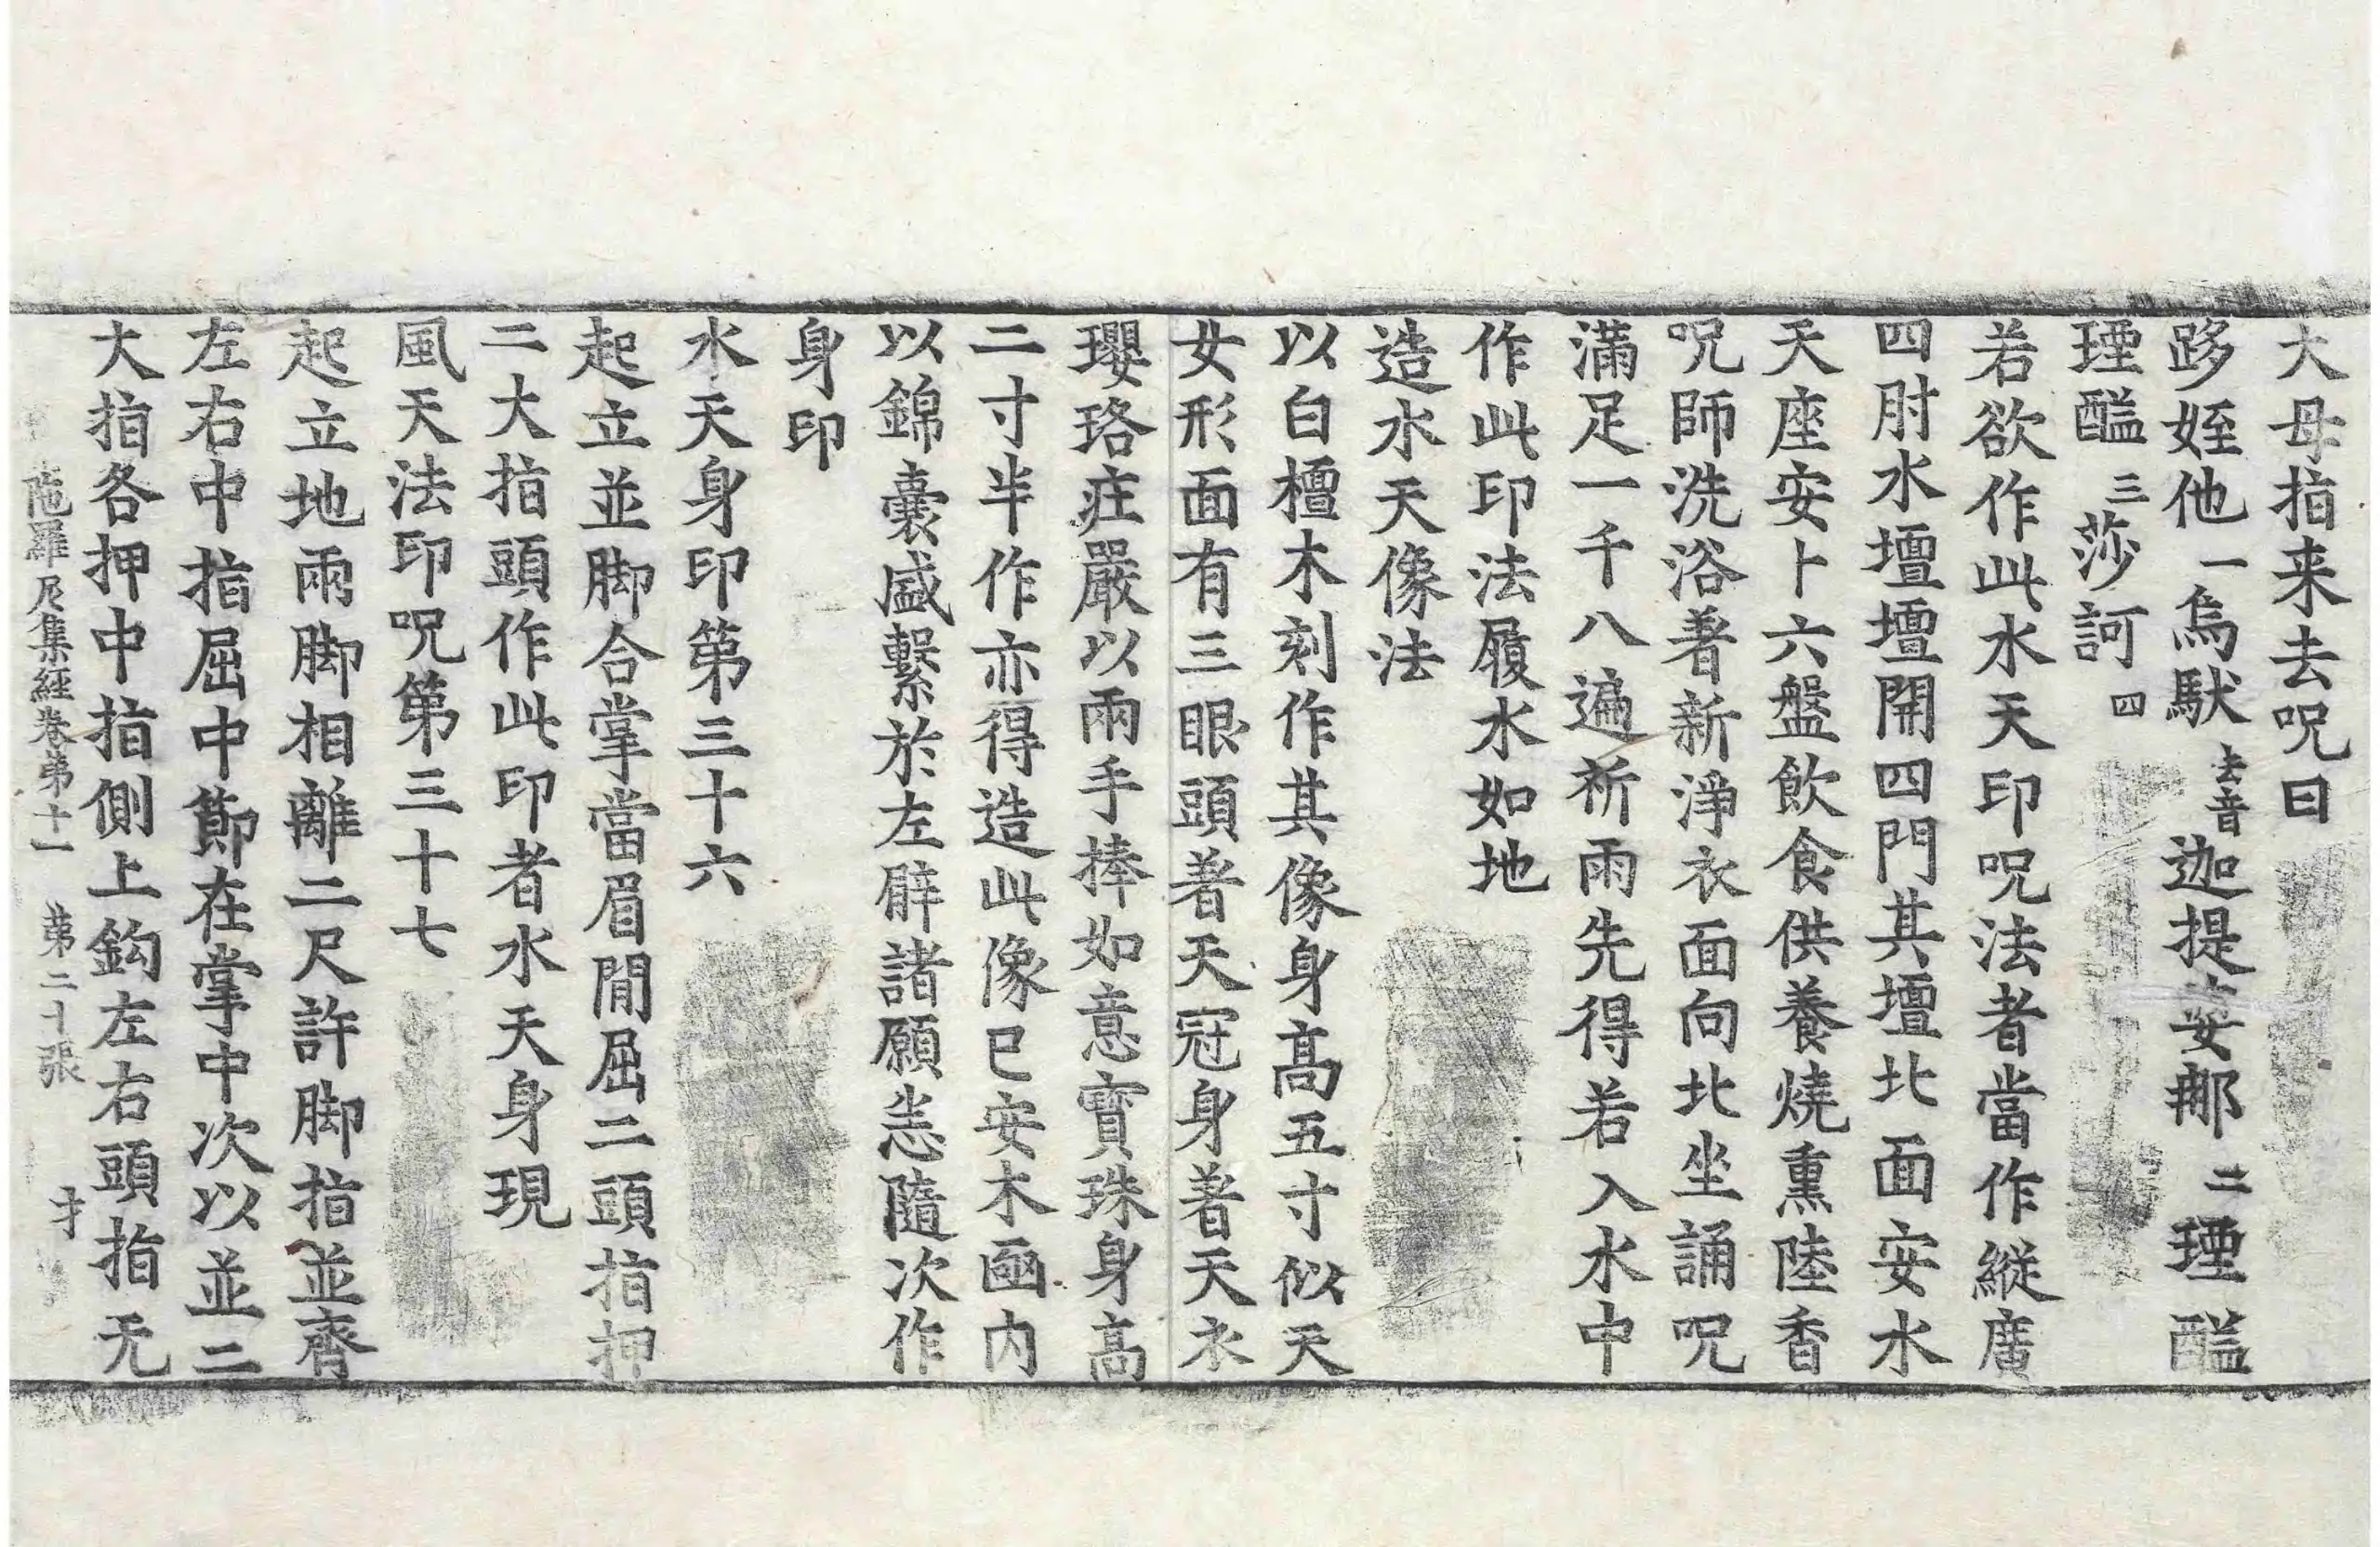 大母指来去呪曰
跢姪他一烏馱去音迦提婆那二瑿醯
瑿醯三莎訶四
若欲作此水天印呪法者當作縱廣
四肘水壇壇開四門其壇北面安水
天座安卜六盤飲食供養燒熏陸香
呪師洗浴著新淨衣面向北坐誦呪
滿足一千八遍祈雨先得若入水中
作此印法履水如地
造水天像法
以白檀木刻作其像身高五寸似天
女形面有三眼頭著天冠身著天衣
瓔珞莊嚴以兩手捧如意寶珠身高
二寸半作亦得造此像已安木函内
以錦囊盛繫於左臂諸願悉隨次作
身印
水天身印第三十六
起立並脚合掌當眉間屈二頭指押
二大指頭作此印者水天身現
風天法印呪第三十七
起立地兩脚相離二尺許脚指並齊
左右中指屈中節在掌中次以並二
大指各押中指側上鈎左右頭指无
陁羅尼集經卷第十一 第二十張 才